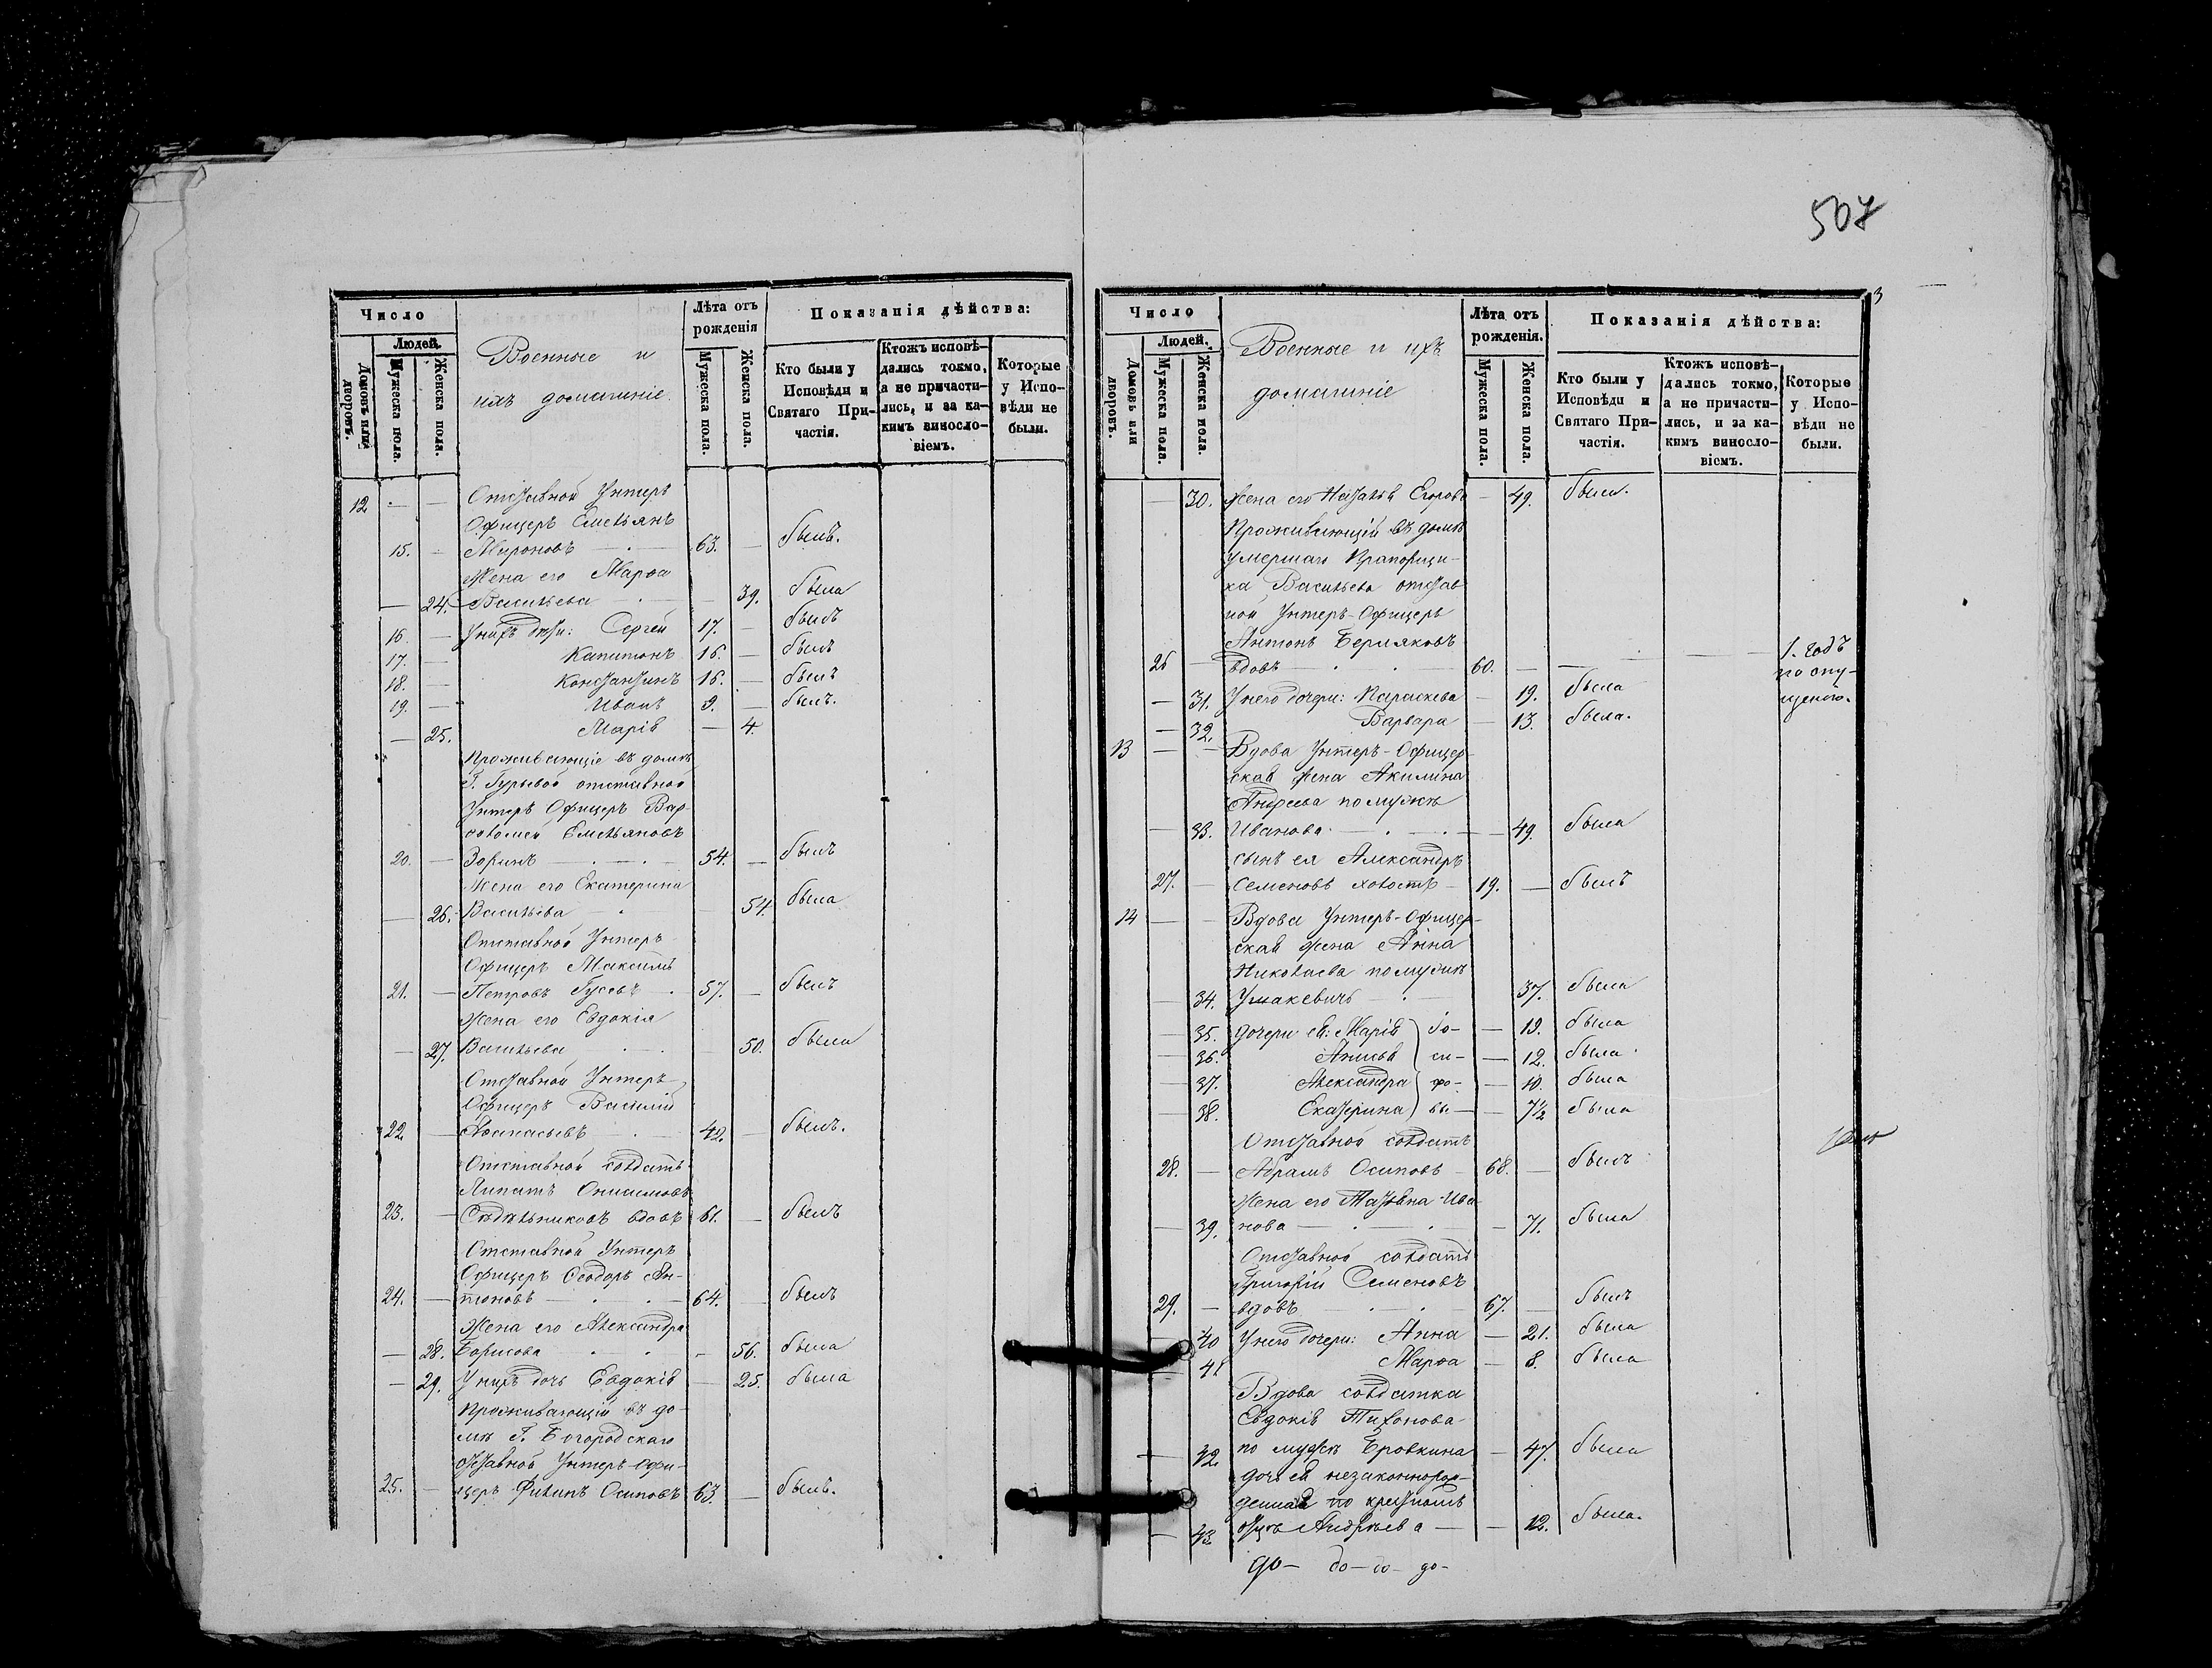 507
3
Число
Людей.
Домовъ или дворовъ.
Мужеска пола.
Женска пола.
Военные и
ихъ домашніе.
Лѣта отъ рожденія
Мужеска пола.
Женска пола.
Показанія дѣйства:
Кто были у Исповѣди и Святаго Причастія.
Ктожъ исповѣдались токмо, а не причастились, и за какимъ винословіемъ.
Которые у Исповѣди не были.
12 Отставной Унтеръ
Офицеръ Емельянъ
15. Мироновъ 63. былъ.
Жена его Марѳа
24. Васильева 39. была
16. У нихъ дѣти: Сергей 17. былъ
17. Капитонъ 16. былъ
18. Константинъ 16. былъ
19. Иванъ 9. былъ.
25. Марія 4.
Проживающіе въ домѣ
Г. Гурьевой отставной
Унтеръ Офицеръ Вар-
ѳоломей Емельяновъ
20. Зоринъ 54. былъ
Жена его Екатерина
26. Васильева 54. была
Отставной Унтеръ
Офицеръ Максимъ
21. Петровъ Гусевъ 57. былъ
Жена его Евдокія
27. Васильева 50. была
Отставной Унтеръ
Офицеръ Василій
22. Аѳанасьевъ 42. былъ.
Отставной солдатъ
Липатъ Онисимовъ
23. Сѣдѣльниковъ вдовъ 61. былъ
Отставной Унтеръ
Офицеръ Ѳеодоръ Ан-
24. тоновъ 64. былъ
Жена его Александра
28. Борисова 56. была
29. У нихъ дочь Евдокія 25. была
Проживающій въ до-
мѣ Г. Богородскаго
отставной Унтеръ-Офи-
25. церъ Филипъ Осиповъ 63. былъ.
Число
Людей.
Домовъ или дворовъ.
Мужеска пола.
Женска пола.
Военные и ихъ
домашніе
Лѣта отъ рожденія.
Мужеска пола.
Женска пола.
Показанія дѣйства:
Кто были у Исповѣди и Святаго Причастія.
Ктожъ исповѣдались токмо, а не причастились, и за какимъ винословіемъ.
Которые у Исповѣди не были.
30. Жена его Наталья Егорова 49. была.
Проживающій въ домѣ
умершаго Прапорщи-
ка Васильева отстав
ной Унтеръ-Офицеръ
Антонъ Берляковъ
26 вдовъ 60. 1. годъ
по опу-
щенію.
31. У него дочери: Параскева 19. была
32. Варвара 13. была.
13 Вдова Унтеръ-Офицер-
ская жена Акилина
Андреева по мужѣ
33. Иванова 49. была
сынъ ея Александръ
27. Семеновъ холостъ 19. былъ
14 Вдова Унтеръ-Офицер-
ская жена Анна
Николаева по мужѣ
34. Ушакевичъ 37. была
35. дочери ея: Марія 19. была
36. Анисья 12. была
37. Александра 10. была
38. Екатерина 7½ была
Отставной солдатъ
28. Абрамъ Осиповъ 68. былъ
Жена его Татьяна Ива
39. нова 71. была
Отставной солдатъ
Григорій Семеновъ
29. вдовъ 67. былъ
40 У него дочери: Анна 21. была
41 Марѳа 8. была
Вдова солдатка
Евдокія Тихонова
42. по мужѣ Бровкина 47. была
дочь ея незаконнорож-
денная по крестномъ
43 отцѣ Андреева 12. была.
до- до-до- до-